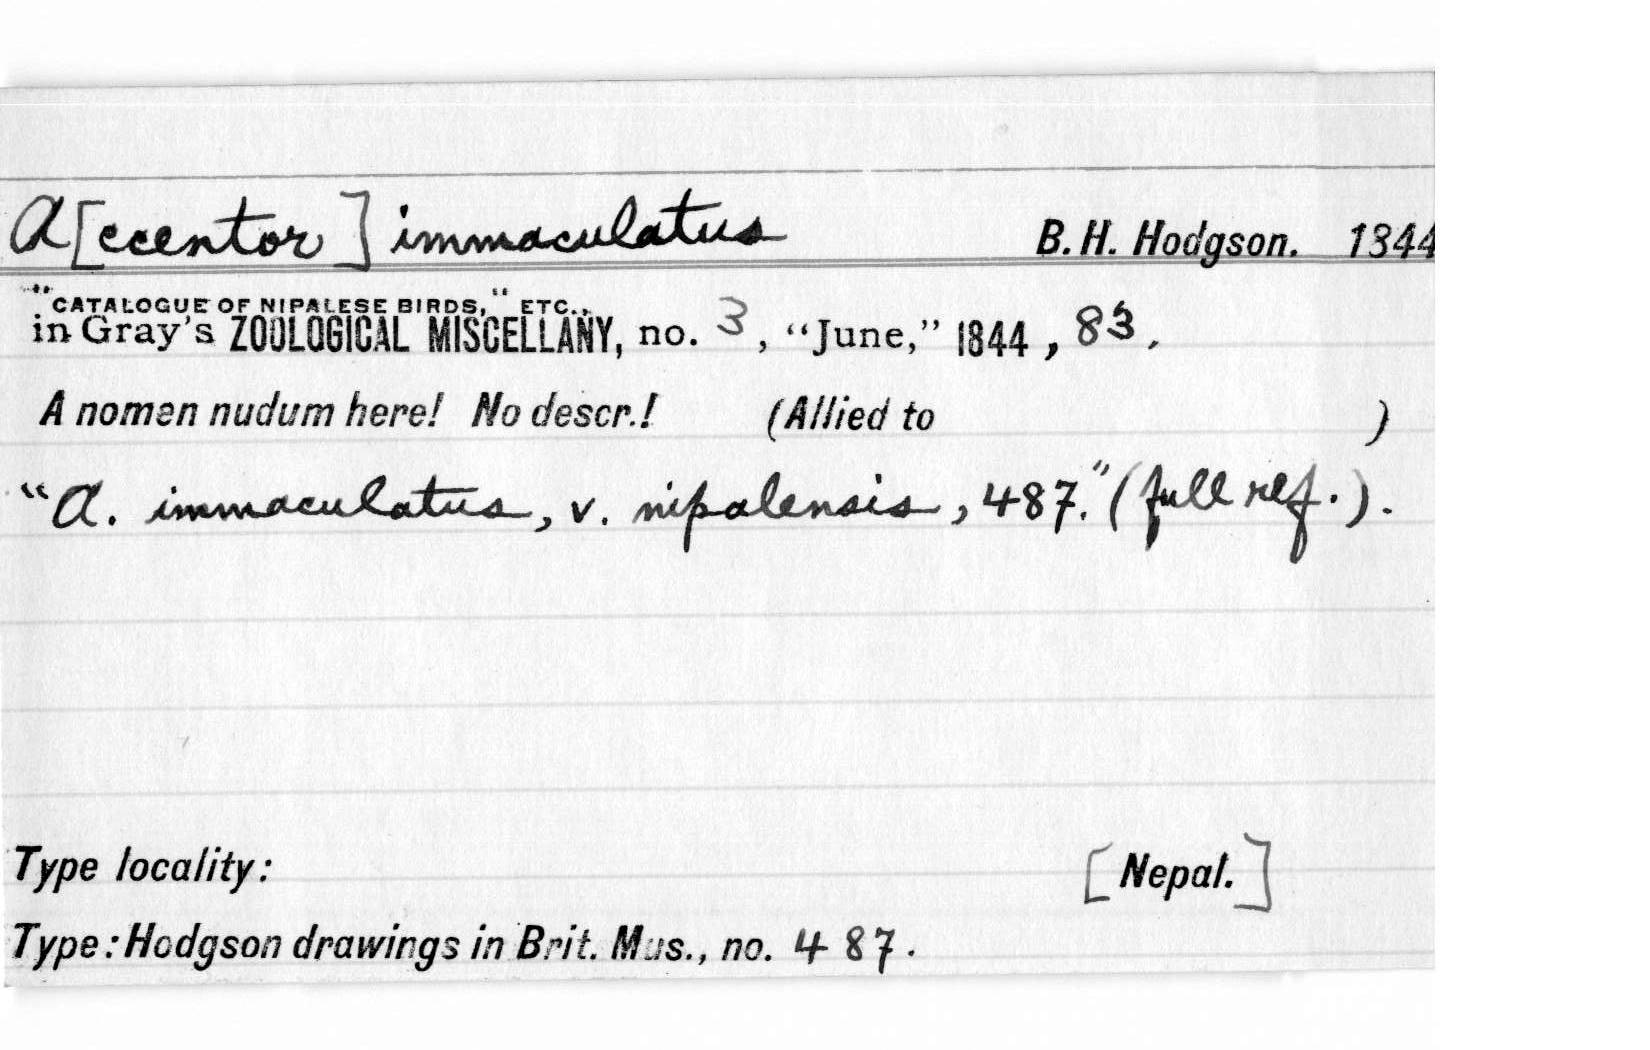 A[ccentor] immaculatus B. H. Hodgson. 1844
"CATALOGUE OF NIPALESE BIRDS," ETC.,
in Gray's ZOOLOGICAL MISCELLANY, no. 3, "June," 1844, 83.
A nomen nudum here! No descr.! (Allied to )
"A. immaculatus, v. nipalensis, 487." (full ref.).
Type locality: [Nepal.]
Type: Hodgson drawings in Brit. Mus., no. 487.